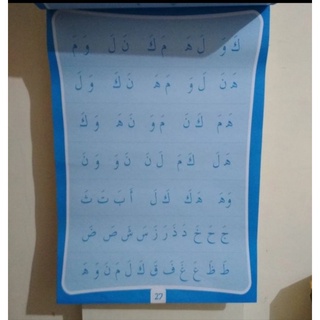 كَ وَ لَ هَ مَ كَ نَ لَ وَ مَ
هَ نَ لَ وَ مَ هَ نَ كَ وَ لَ
هَ مَ كَ نَ مَ وَ نَ هَ وَ كَ
هَ لَ كَ مَ لَ نَ نَ وَ وَ نَ
وَ هَ هَ كَ كَ لَ أَ بَ تَ ثَ
جَ حَ خَ دَ ذَ رَ زَ سَ شَ صَ ضَ
طَ ظَ عَ غَ فَ قَ كَ لَ مَ نَ وَ هَ
27